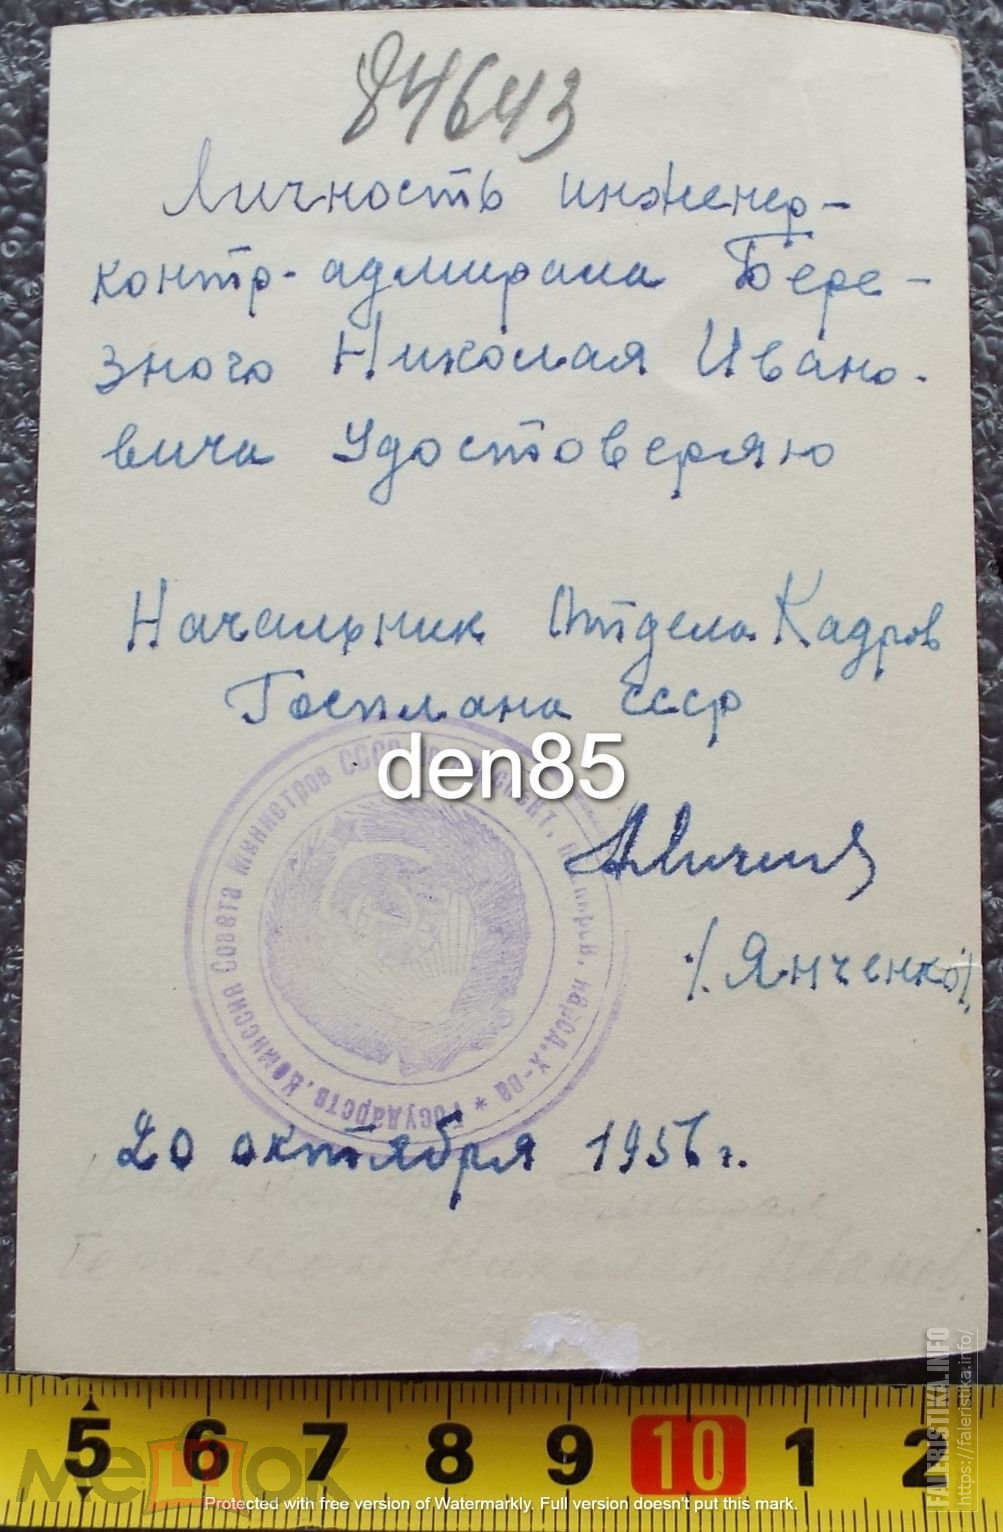 84643
Личность инженер-
контр-адмирала Бере-
зного Николая Ивано-
вича удостоверяю
Начальник Отдела Кадров
Госплана СССР
den85
Государств. Комиссия Совета министров СССР
народ. х-ва *
/Янченко/
20 октября 1956 г.
FALERISTIKA.INFO
https://faleristika.info/
5 6 7 8 9 10 1 2
МешОк
Protected with free version of Watermarkly. Full version doesn't put this mark.